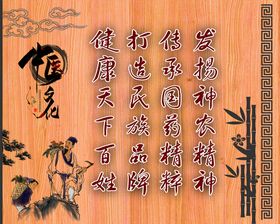 发扬神农精神
传承国药精粹
打造民族品牌
健康天下百姓